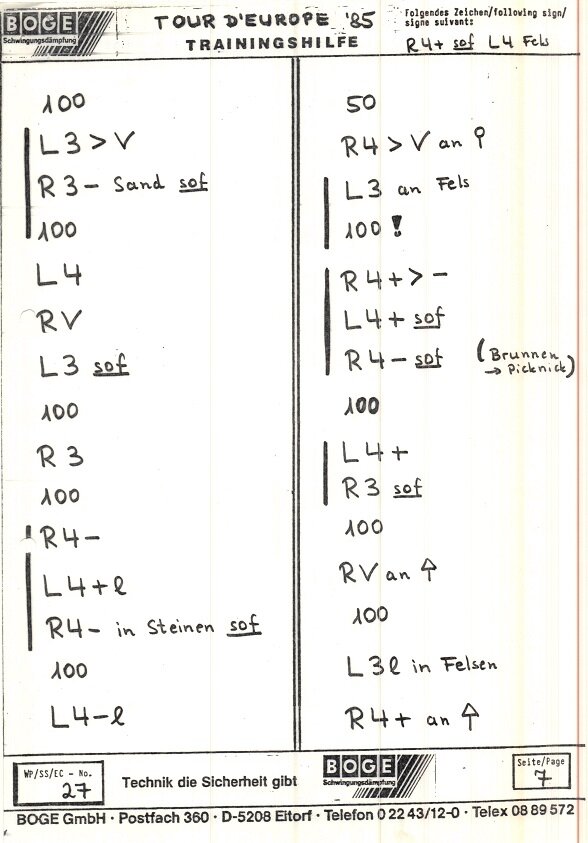 BOGE
Schwingungsdämpfung
TOUR D'EUROPE '85
TRAININGSHILFE
Folgendes Zeichen/following sign/
signe suivant:
R4+ sof L4 Fels
100
L3 > V
R3- Sand sof
100
L4
RV
L3 sof
100
R3
100
R4-
L4+l
R4- in Steinen sof
100
L4-l
50
R4 > V an
L3 an Fels
100 !
R4+ > -
L4+ sof
R4- sof (Brunnen
→ Picknick)
100
L4+
R3 sof
100
RV an ↑
100
L3l in Felsen
R4+ an ↑
WP/SS/EC - No.
27
Technik die Sicherheit gibt
BOGE
Schwingungsdämpfung
Seite/Page
7
BOGE GmbH · Postfach 360 · D-5208 Eitorf · Telefon 0 22 43/12-0 · Telex 08 89 572